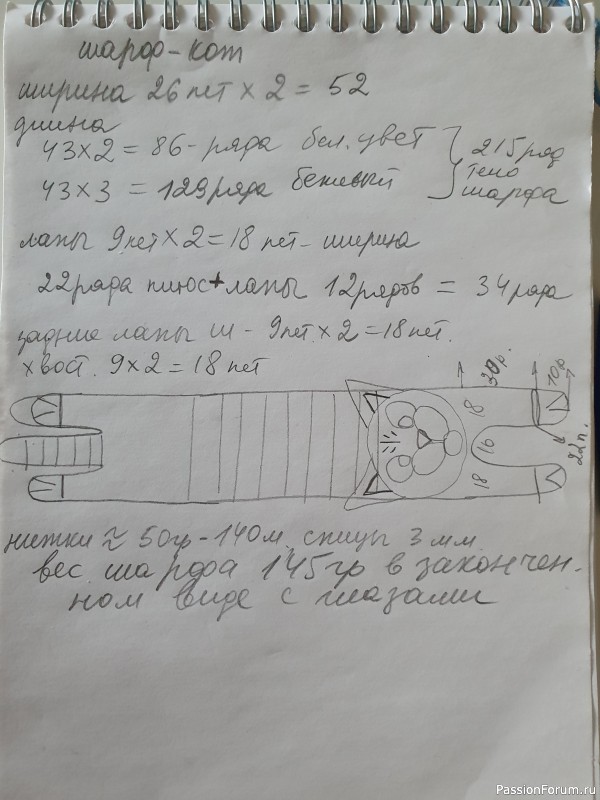 шарф-кот
ширина 26 пет × 2 = 52
длина
43×2 = 86 - ряда бел. цвет
43×3 = 129 ряда бежевый
215 ряд
тело
шарфа
лапы 9 пет × 2 = 18 пет - ширина
22 ряда плюс + лапы 12 рядов = 34 ряда
задние лапы ш - 9 пет. × 2 = 18 пет.
хвост. 9×2 = 18 пет
30р.
10р
18
16
18
22п.
нитки ≈ 50гр - 140м, спицы 3 мм
вес шарфа 145гр в закончен-
ном виде с глазами
PassionForum.ru